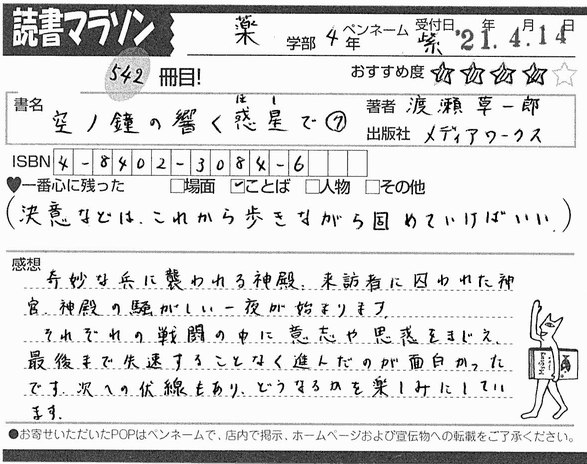 読書マラソン
薬 学部 4年 ペンネーム 紫 受付日 '21.年4.月14日
542冊目!
おすすめ度 ★★★★☆
書名 空ノ鐘の響く惑星(ほし)で⑦
著者 渡瀬草一郎
出版社 メディアワークス
ISBN 4-8402-3084-6
♥一番心に残った □場面 ☑ことば □人物 □その他
(決意などは、これから歩きながら固めていけばいい。)
感想
奇妙な兵に襲われる神殿。来訪者に囚われた神
官。神殿の騒がしい一夜が始まります。
それぞれの戦闘の中に意志や思惑をまじえ、
最後まで失速することなく進んだのが面白かった
です。次への伏線もあり、どうなるかを楽しみにしてい
ます。
●お寄せいただいたPOPはペンネームで、店内で掲示、ホームページおよび宣伝物への転載をご了承ください。